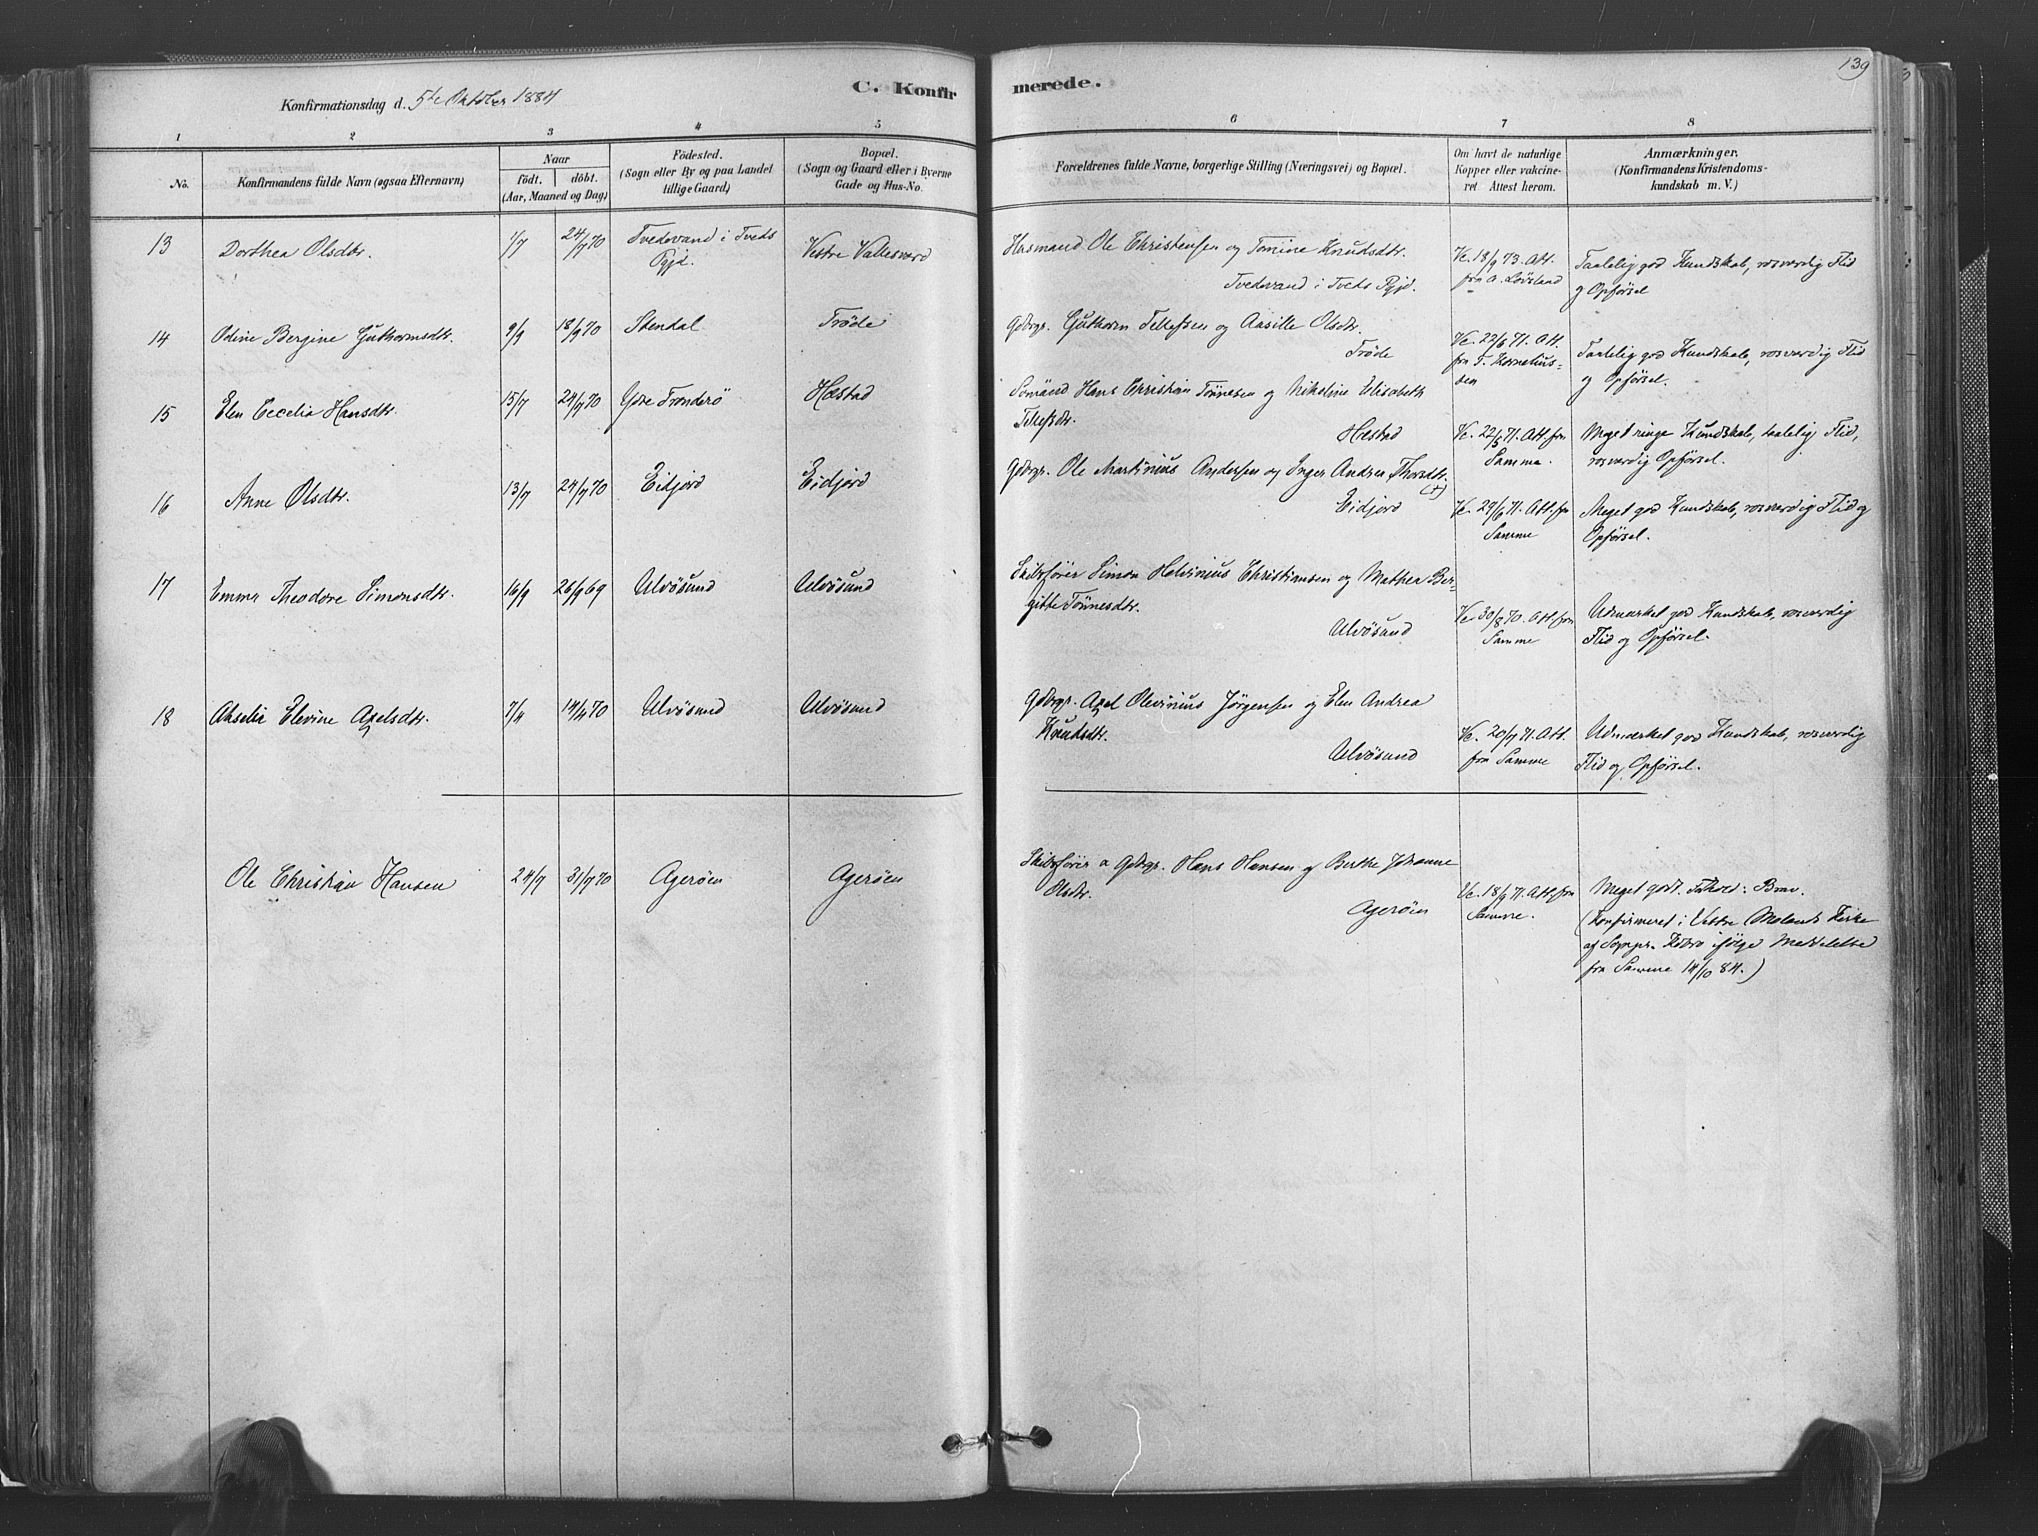 139
Konfirmationsdag d. 5te Oktober 1884
C. Konfirmerede.
1 2 3 4 5 6 7 8
No.
Konfirmandens fulde Navn (ogsaa Efternavn)
Naar
födt. döbt.
(Aar, Maaned og Dag)
Födested.
(Sogn eller By og paa Landet
tillige Gaard)
Bopæl.
(Sogn og Gaard eller i Byerne
Gade og Hus-No.
Forældrenes fulde Navne, borgerlige Stilling (Næringsvei) og Bopæl.
Om havt de naturlige
Kopper eller vakcine-
ret Attest herom.
Anmærkninger.
(Konfirmandens Kristendoms-
kundskab m. V.)
13 Dorthea Olsdtr. 1/7 24/7 70 Tvedevand i Tveds
Pgjd. Vestre Vallesværd
Husmand Ole Christensen og Tomine Knudsdtr.
Tvedevand i Tveds Pgjd.
Vc. 18/9 73. Att.
fra A. Løvsland
Taalelig god Kundskab, rosværdig Flid
og Opførsel
14 Odine Bergine Guthormsdtr. 9/9 18/9 70 Stendal Trøde
Gdbrgr. Guthorm Tellefsen og Aasille Olsdtr.
Trøde
Vc. 22/6 71. Att.
fra T. Kornelius-
sen
Taalelig god Kundskab, rosværdig Flid
og Opførsel.
15 Elen Cecelia Hansdtr. 15/7 24/7 70 Ydre Trønderö Hæstad
Sømand Hans Christian Tönnesen og Nikoline Elisabeth
Tellefsdtr.
Hæstad
Vc. 22/5 71. Att. fra
Samme.
Meget ringe Kundskab, taalelig Flid,
rosværdig Opførsel.
16 Anne Olsdtr. 13/7 24/7 70 Eidjord Eidjord
Gdbrgr. Ole Martinius Andersen og Inger Andrea Thorsdtr.
(+)
Eidjord
Vc. 29/6 71. Att. fra
Samme
Meget god Kundskab, rosværdig Flid og
Opførsel.
17 Emma Theodore Simonsdtr. 16/9 26/9 69 Ulvøsund Ulvøsund
Skibsfører Simon Helvinius Christiansen og Mathea Ber-
gitte Tönnesdtr.
Ulvøsund
Vc. 30/8 70. Att. fra
Samme
Udmærket god Kundskab, rosværdig
Flid og Opførsel.
18 Akselia Elevine Axelsdtr. 7/4 14/4 70 Ulvøsund Ulvøsund
Gdbrgr. Axel Olevinius Jørgensen og Elen Andrea
Knudsdtr.
Ulvøsund
Vc. 20/7 71. Att.
fra Samme
Udmærket god Kundskab, rosværdig
Flid og Opførsel.
Ole Christian Hansen 24/7 31/7 70 Agerøen Agerøen
Skibsfører o Gdbrgr. Hans Hansen og Berthe Johanne
Olsdtr.
Agerøen
Vc. 18/9 71. Att. fra
Samme.
Meget godt. Forhold: Brav.
(Konfirmeret i Vestre Molands Kirke
af Sognpr. ifølge Meddelelse
fra Samme 14/10 84.)